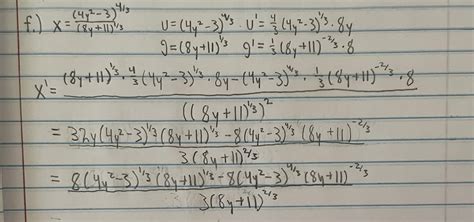 f.) x = (4y²-3)^4/3 / (8y+11)^1/3    U = (4y²-3)^4/3 · U' = 4/3 (4y²-3)^1/3 · 8y
g = (8y+11)^1/3   g' = 1/3 (8y+11)^-2/3 · 8
x' = (8y+11)^1/3 · 4/3 (4y²-3)^1/3 · 8y - (4y²-3)^4/3 · 1/3 (8y+11)^-2/3 · 8 / ((8y+11)^1/3)²
= 32y(4y²-3)^1/3 (8y+11)^1/3 - 8(4y²-3)^4/3 (8y+11)^-2/3 / 3(8y+11)^2/3
= 8(4y²-3)^1/3 (8y+11)^1/3 - 8(4y²-3)^4/3 (8y+11)^-2/3 / 3(8y+11)^2/3